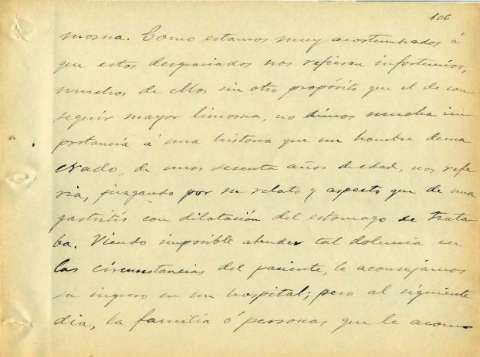 106
mosna. Como estamos muy acostumbrados á
que estos desgraciados nos refieran infortunios,
muchos de ellos sin otro propósito que el de con
seguir mayor limosna, no dimos mucha im
portancia á una historia que un hombre dema
crado, de unos sesenta años de edad, nos refe
ria, juzgando por su relato y aspecto que de una
gastritis con dilatación del estómago se trata
ba. Viendo imposible atender tal dolencia en
las circunstancias del paciente, le aconsejamos
su ingreso en un hospital; pero al siguiente
dia, la familia ó personas que le acom